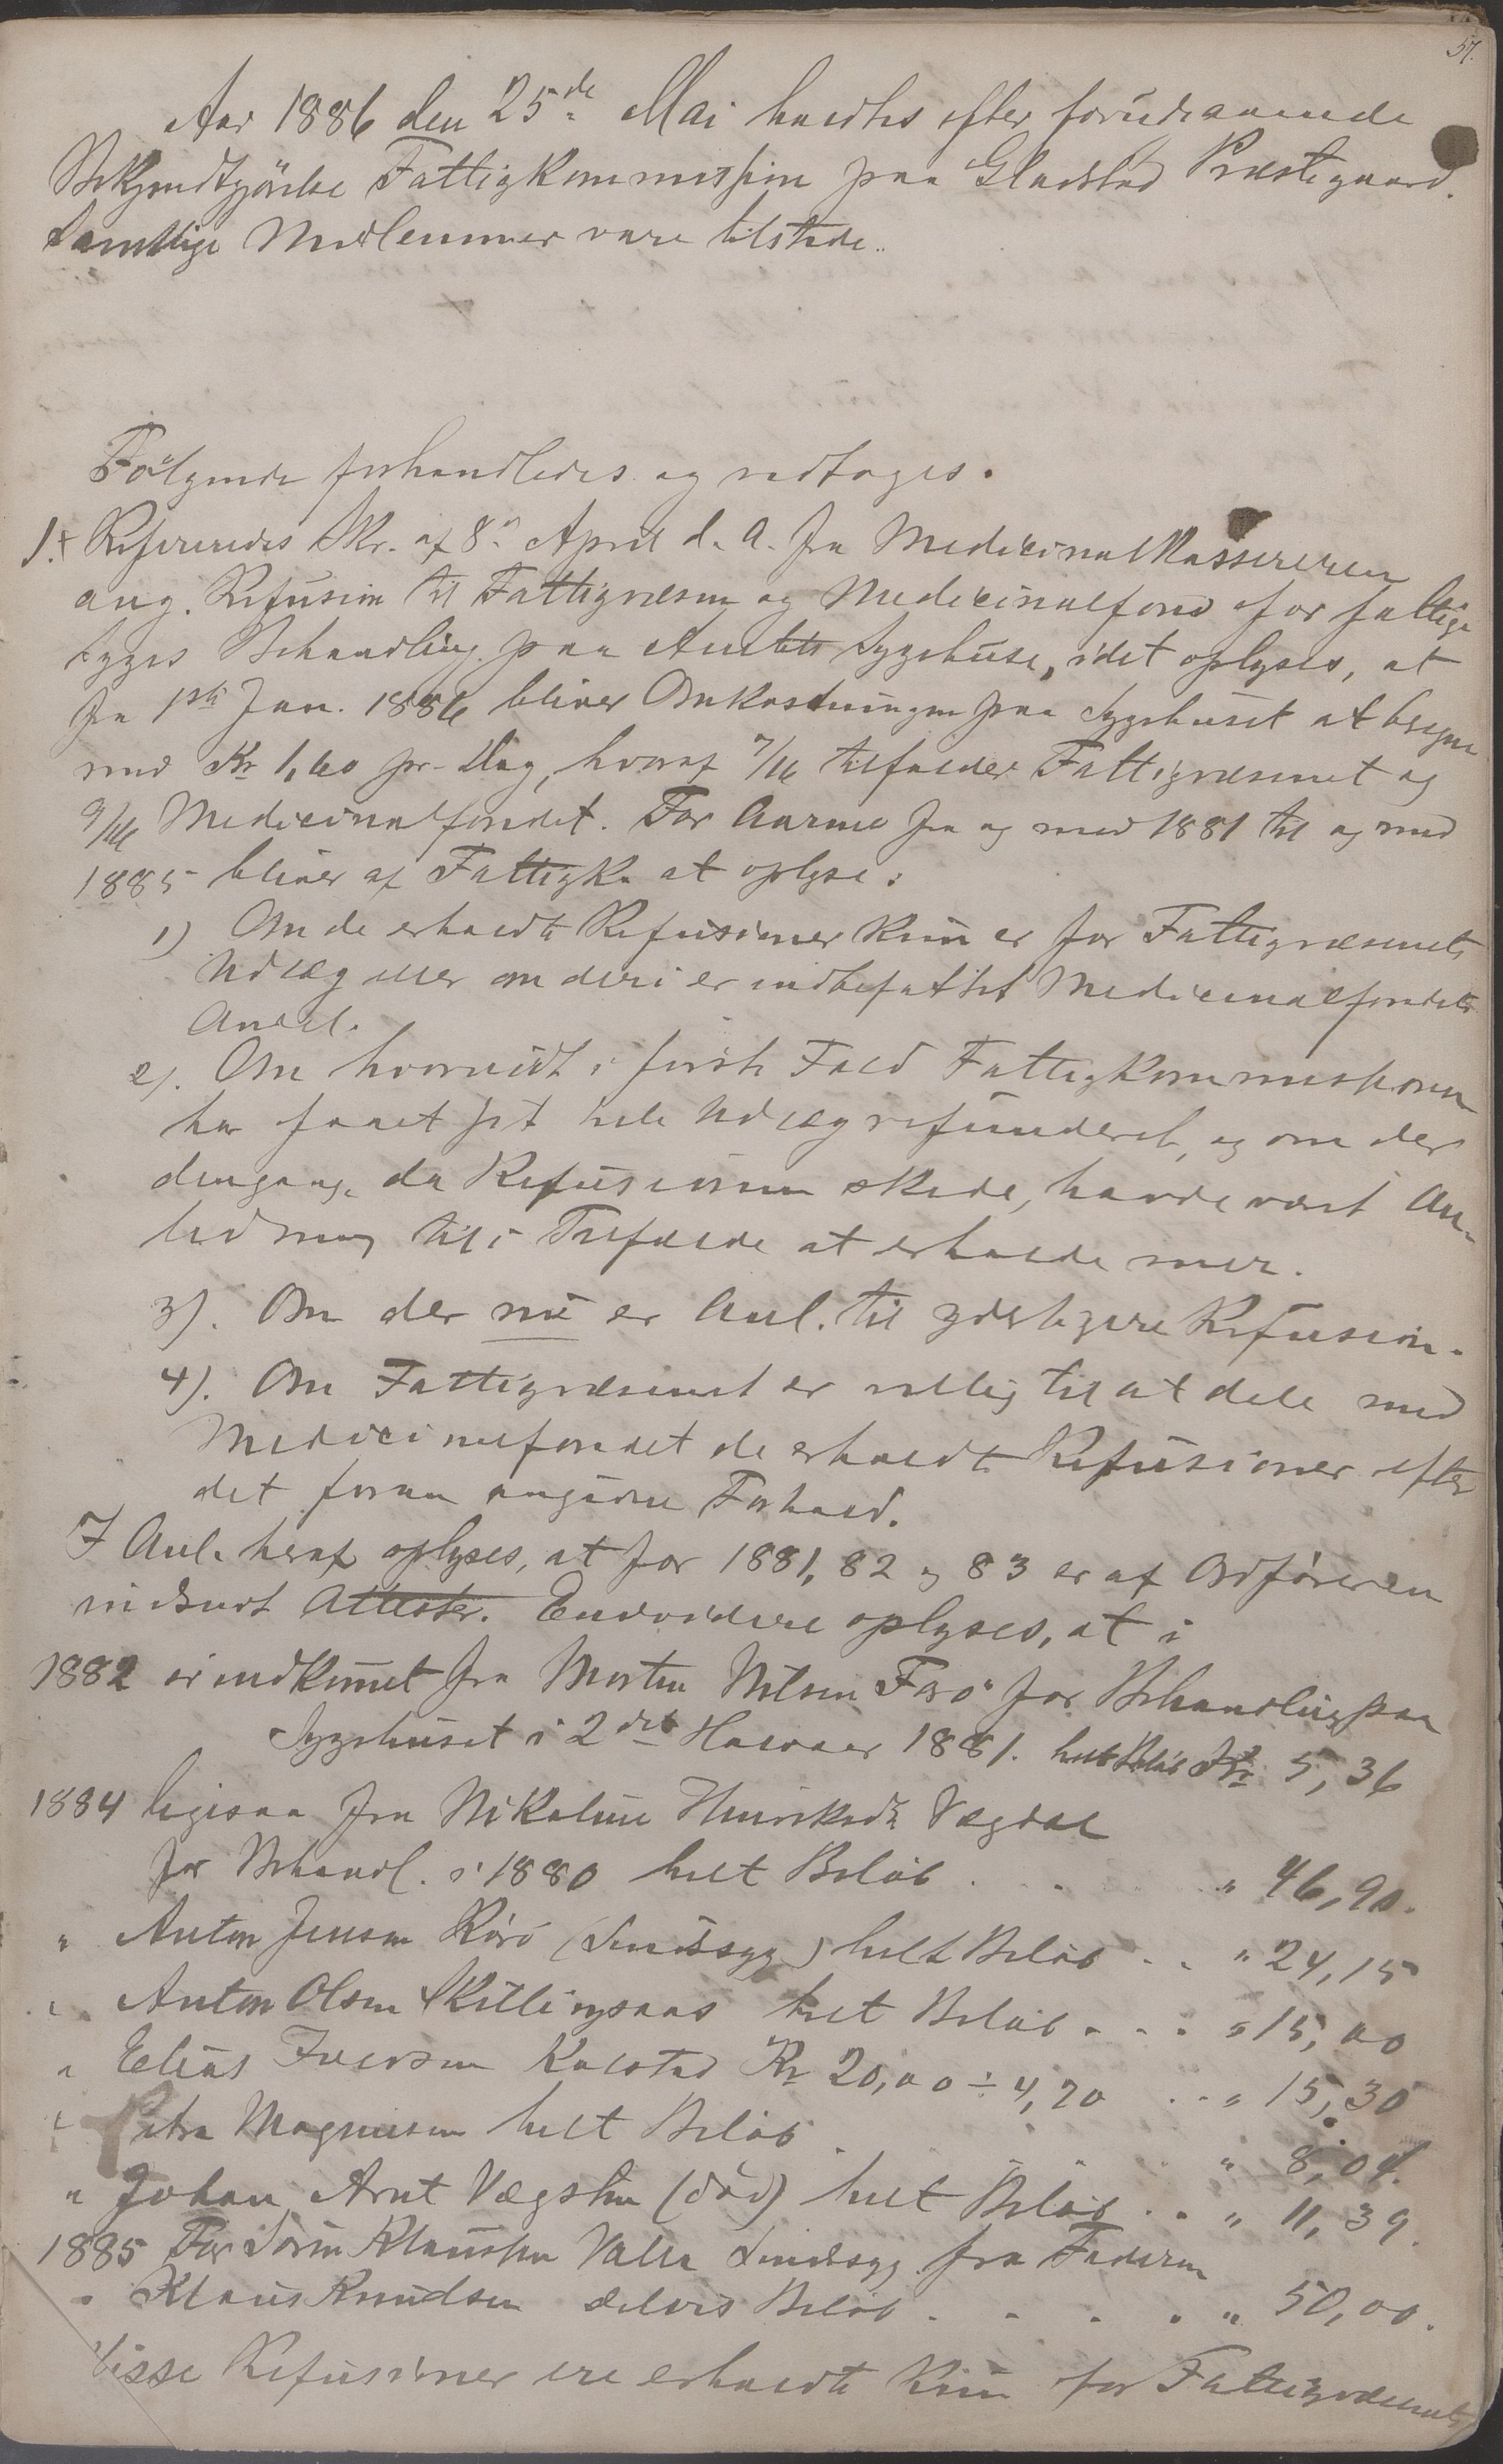 57.
Aar 1886 den 25de Mai holdtes efter forudgaaende
Bekjendtgjörelse Fattigkommission paa Gladstad Præstegaard.
Samtlige Medlemmer vare tilstede.
Følgende forhandledes og vedtoges.
1.+ Refereredes Skr. af 8de April d. A. fra Medicinalkassereren
ang. Refusion til Fattigvæsen og Medicinalfond for fattige
Syges Behandling paa Amtets Sygehuse, idet oplyses, at
fra 1ste Jan. 1886 bliver Omkostningen paa Sygehuset at beregne
med Kr 1,60 pr. Dag, hvoraf 7/16 tilfalder Fattigvæsenet og
9/16 Medicinalfondet. For Aarene fra og med 1881 til og med
1885 bliver af Fattigk. at oplyse:
1) Om de erholdte Refusioner kun er for Fattigvæsenets
Udlæg eller om deri er indbefattet Medicinalfondets
Andel.
2). Om hvorvidt i første Fald Fattigkommissionen
har faaet sit hele Udlæg refunderet, og om der
dengang, da Refusionen skede, havde været An-
ledning til i Tilfælde at erholde mer.
3). Om der nu er Anl. til yderligere Refusion.
4). Om Fattigvæsenet er villig til at dele med
Medicinalfondet de erholdte Refusioner efter
det foran angivne Forhold.
I Anl. heraf oplyses, at for 1881, 82 og 83 er af Ordføreren
indsendt Attester. Endvidere oplyses, at i
1882 er indkommet fra Morten Nilsen Farø for Behandling paa
Sygehuset i 2det Halvaar 1881. helt Beløb Kr 5,36
1884 ligesaa fra Nikoline Henriksdt Vægdal
for Behandl. i 1880 helt Beløb . . . " 46,90.
" Anton Jensen Rörö (Sindssyg) helt Beløb . . " 24,15
" Anton Olsen Skillingsaas helt Beløb . . . " 15,00
" Elias Iversen Kalstad Kr 20,00 ÷ 4,70 . . " 15,30
" Petra Magnusen helt Beløb . . . " 8,04.
" Johan Arnt Vægsten (död) helt Beløb . . " 11,39.
1885 For Sörin Klaussen Valla Sindssyg fra Faderen
" Klaus Knudsen delvis Beløb . . . . " 50,00.
Disse Refusioner ere erholdte kun for Fattigvæsenets